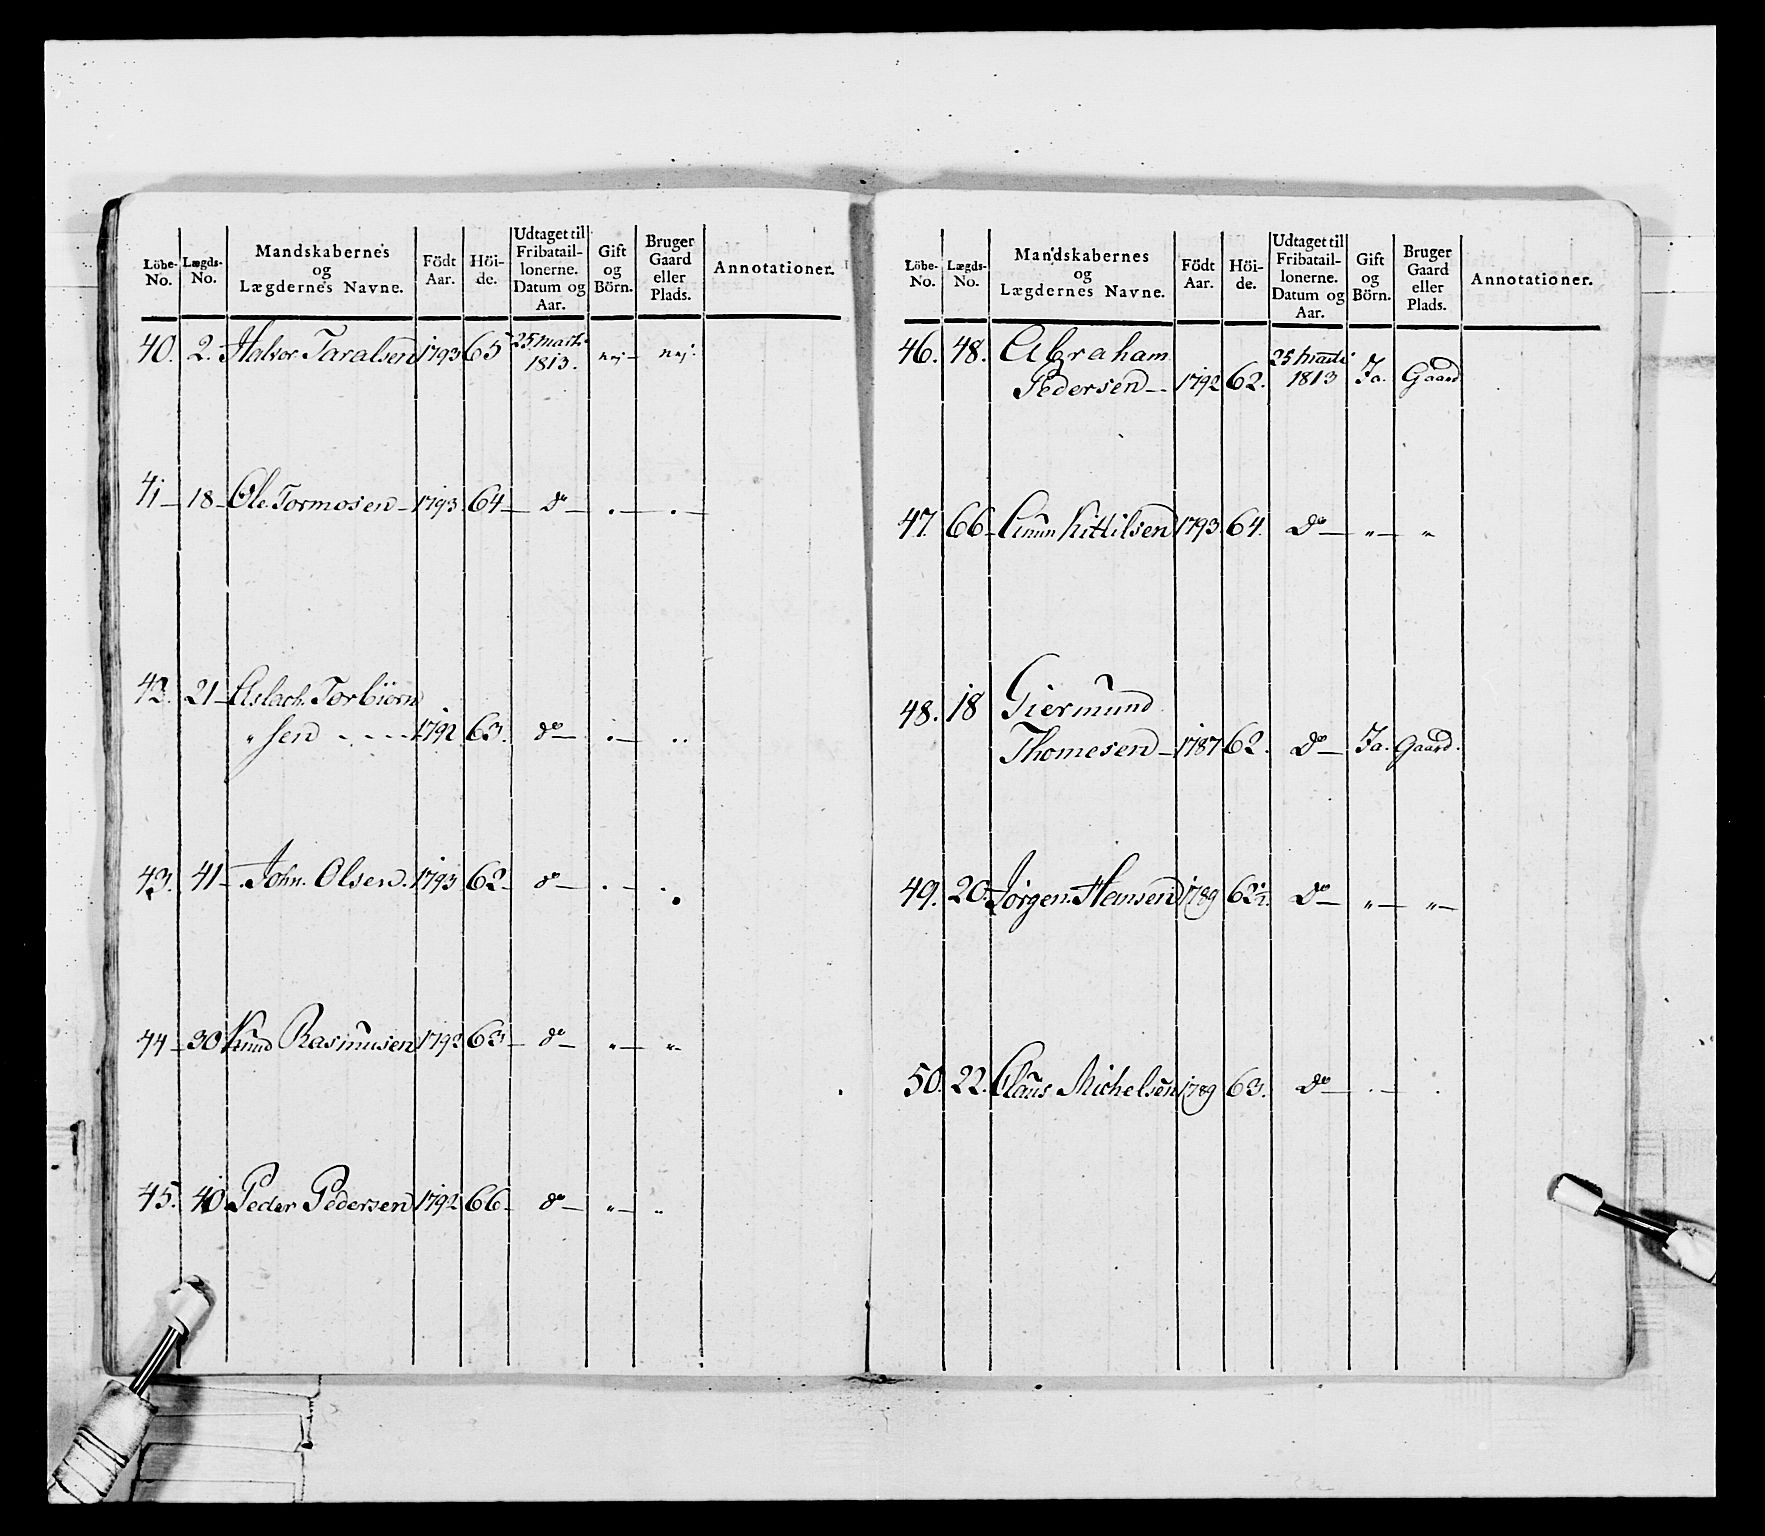 Löbe- No. Lægds- No. Mandskabernes og Lægdernes Navne. Födt Aar. Höi- de. Udtaget til Fribatail- lonerne. Datum og Aar. Gift og Börn. Bruger Gaard eller Plads. Annotationer.
40. 2. Halvor Taralsen 1793 65 25 Marti 1813. nej nej.
41 18 Ole Tormosen 1793 64 do
42. 21 Aslach Torbiörn
" sen 1792 63. do
43. 41 John Olsen. 1793 62 do
44 30 Knud Rasmusen 1793 63 do " "
45. 40 Peder Pedersen 1792 66 do " "
Löbe- No. Lægds- No. Mandskabernes og Lægdernes Navne. Födt Aar. Höi- de. Udtaget til Fribatail- lonerne. Datum og Aar. Gift og Börn. Bruger Gaard eller Plads. Annotationer.
46. 48. Abraham
Pedersen 1792 62. 25 Marti 1813 Ja. Gaard
47. 66 Kittilsen 1793. 64. Do " "
48. 18 Giermund
Thomesen 1787 62. Do Ja. Gaard.
49. 20. Jörgen Hansen 1789 Do " "
50. 22. Claus Michelsen 1789 63. Do